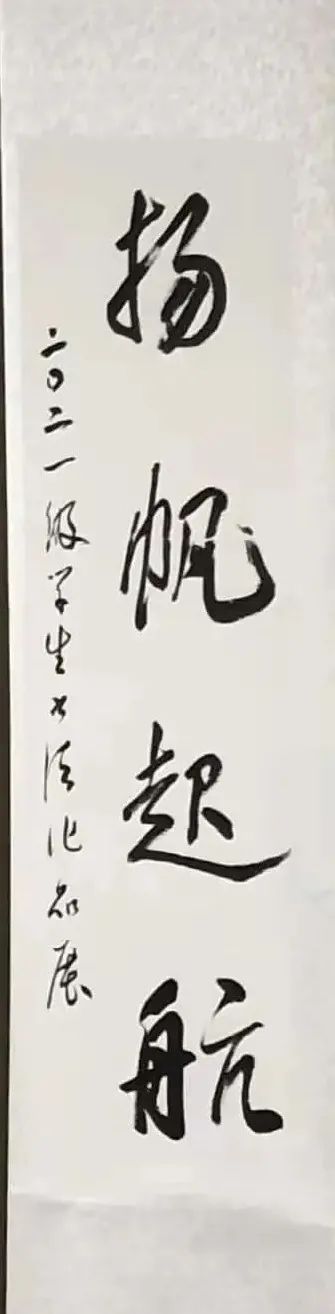 扬帆起航
二〇二一级学生书法作品展